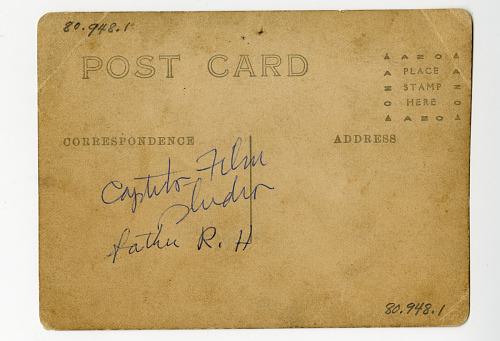 80.948.1
POST CARD
AZO
PLACE
STAMP
HERE
AZO
CORRESPONDENCE
ADDRESS
Film
Studio
father R. H
80.948.1